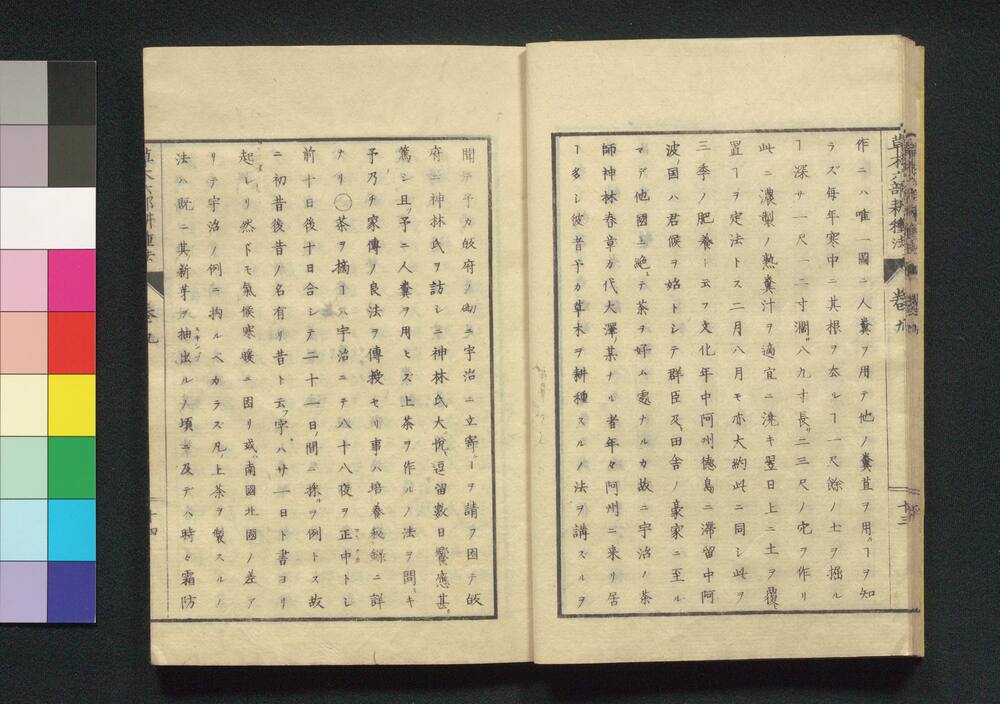 草木六部耕種法 卷九 十三
作ニハ唯一國ニ人糞ヲ用テ他ノ糞苴ヲ用ルヿヲ知
ラズ每年寒中ニ其根ヲ去ルヿ一尺餘ノ土ヲ掘ル
ヿ深サ一尺一二寸濶サ八九寸長サ二三尺ノ宂ヲ作リ
此ニ濃製ノ熟糞汁ヲ適宜ニ澆キ翌日上ニ土ヲ覆ヒ
置クヿヲ定法トス二月八月モ亦大約此ニ同シ此ヲ
三季ノ肥養ト云フ文化年中阿州德島ニ滞留中阿
波ノ国ハ君候ヲ始トシテ群臣及ヒ田舎ノ豪家ニ至ル
マデ他國ニ絶シテ茶ヲ好ム處ナルカ故ニ宇治ノ茶
師神林春章カ代大澤某ナル者年々阿州ニ来リ居
ヿ多シ彼者予カ草木ヲ耕種スルノ法ヲ講ズルヲ
聞テ予カ皈府ノ時ニ宇治ニ立寄ンヿヲ請フ因テ皈
府ニ神林氏ヲ訪シニ神林氏大ニ悦ヒ逗留數日饗應甚タ
篤シ且ツ予ニ人糞ヲ用ヒズ上茶ヲ作ルノ法ヲ問ヘキ
予乃チ家傳ノ良法ヲ傳授セリ事ハ培養秘録ニ詳
ナリ○茶ヲ摘ヿハ宇治ニテ八十八夜ヲ正中トシ
前十日後十日合シテ二十一日ノ間ニ採ルヲ例トス故
ニ初昔後昔ノ名有リ昔ト云フ字ハ廿一日ト書ヨリ
起レリ然ドモ氣候寒暖ニ因リ或ハ南國北國ノ差ア
リテ宇治ノ例ニ拘ルベカラズ凡ソ上茶ヲ製スルノ
法ハ既ニ其新芽ヲ抽出ルノ頃ニ及テハ時々霜防
草木六部耕種法 卷九 十四